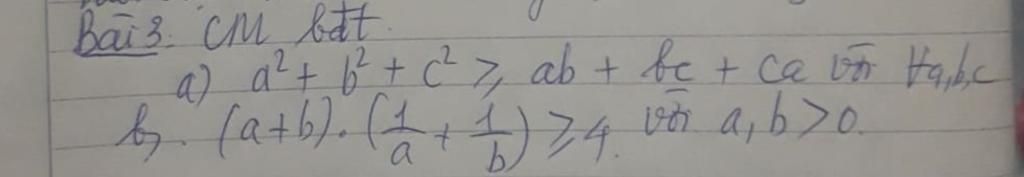 Bài 3: CM bđt.
a) a² + b² + c² ≥ ab + bc + ca với ∀a,b,c
b, (a+b).(1/a + 1/b) ≥ 4. với a, b > 0.